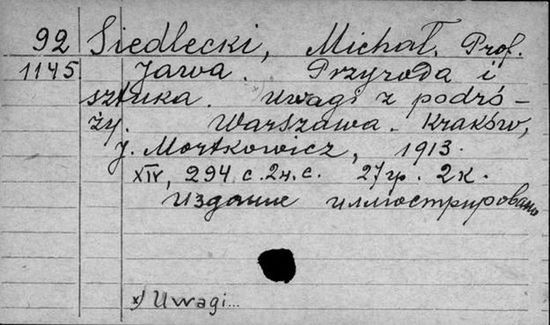 92 Siedlecki, Michał, Prof.
1145 Jawa. Przyroda i
sztuka. Uwagi z podró-
ży. Warszawa. Kraków,
J. Mortkowicz, 1913.
XIV, 294 с. 2 н. с. 27 гр. 2 к.
Издание иллюстрировано
x) Uwagi...